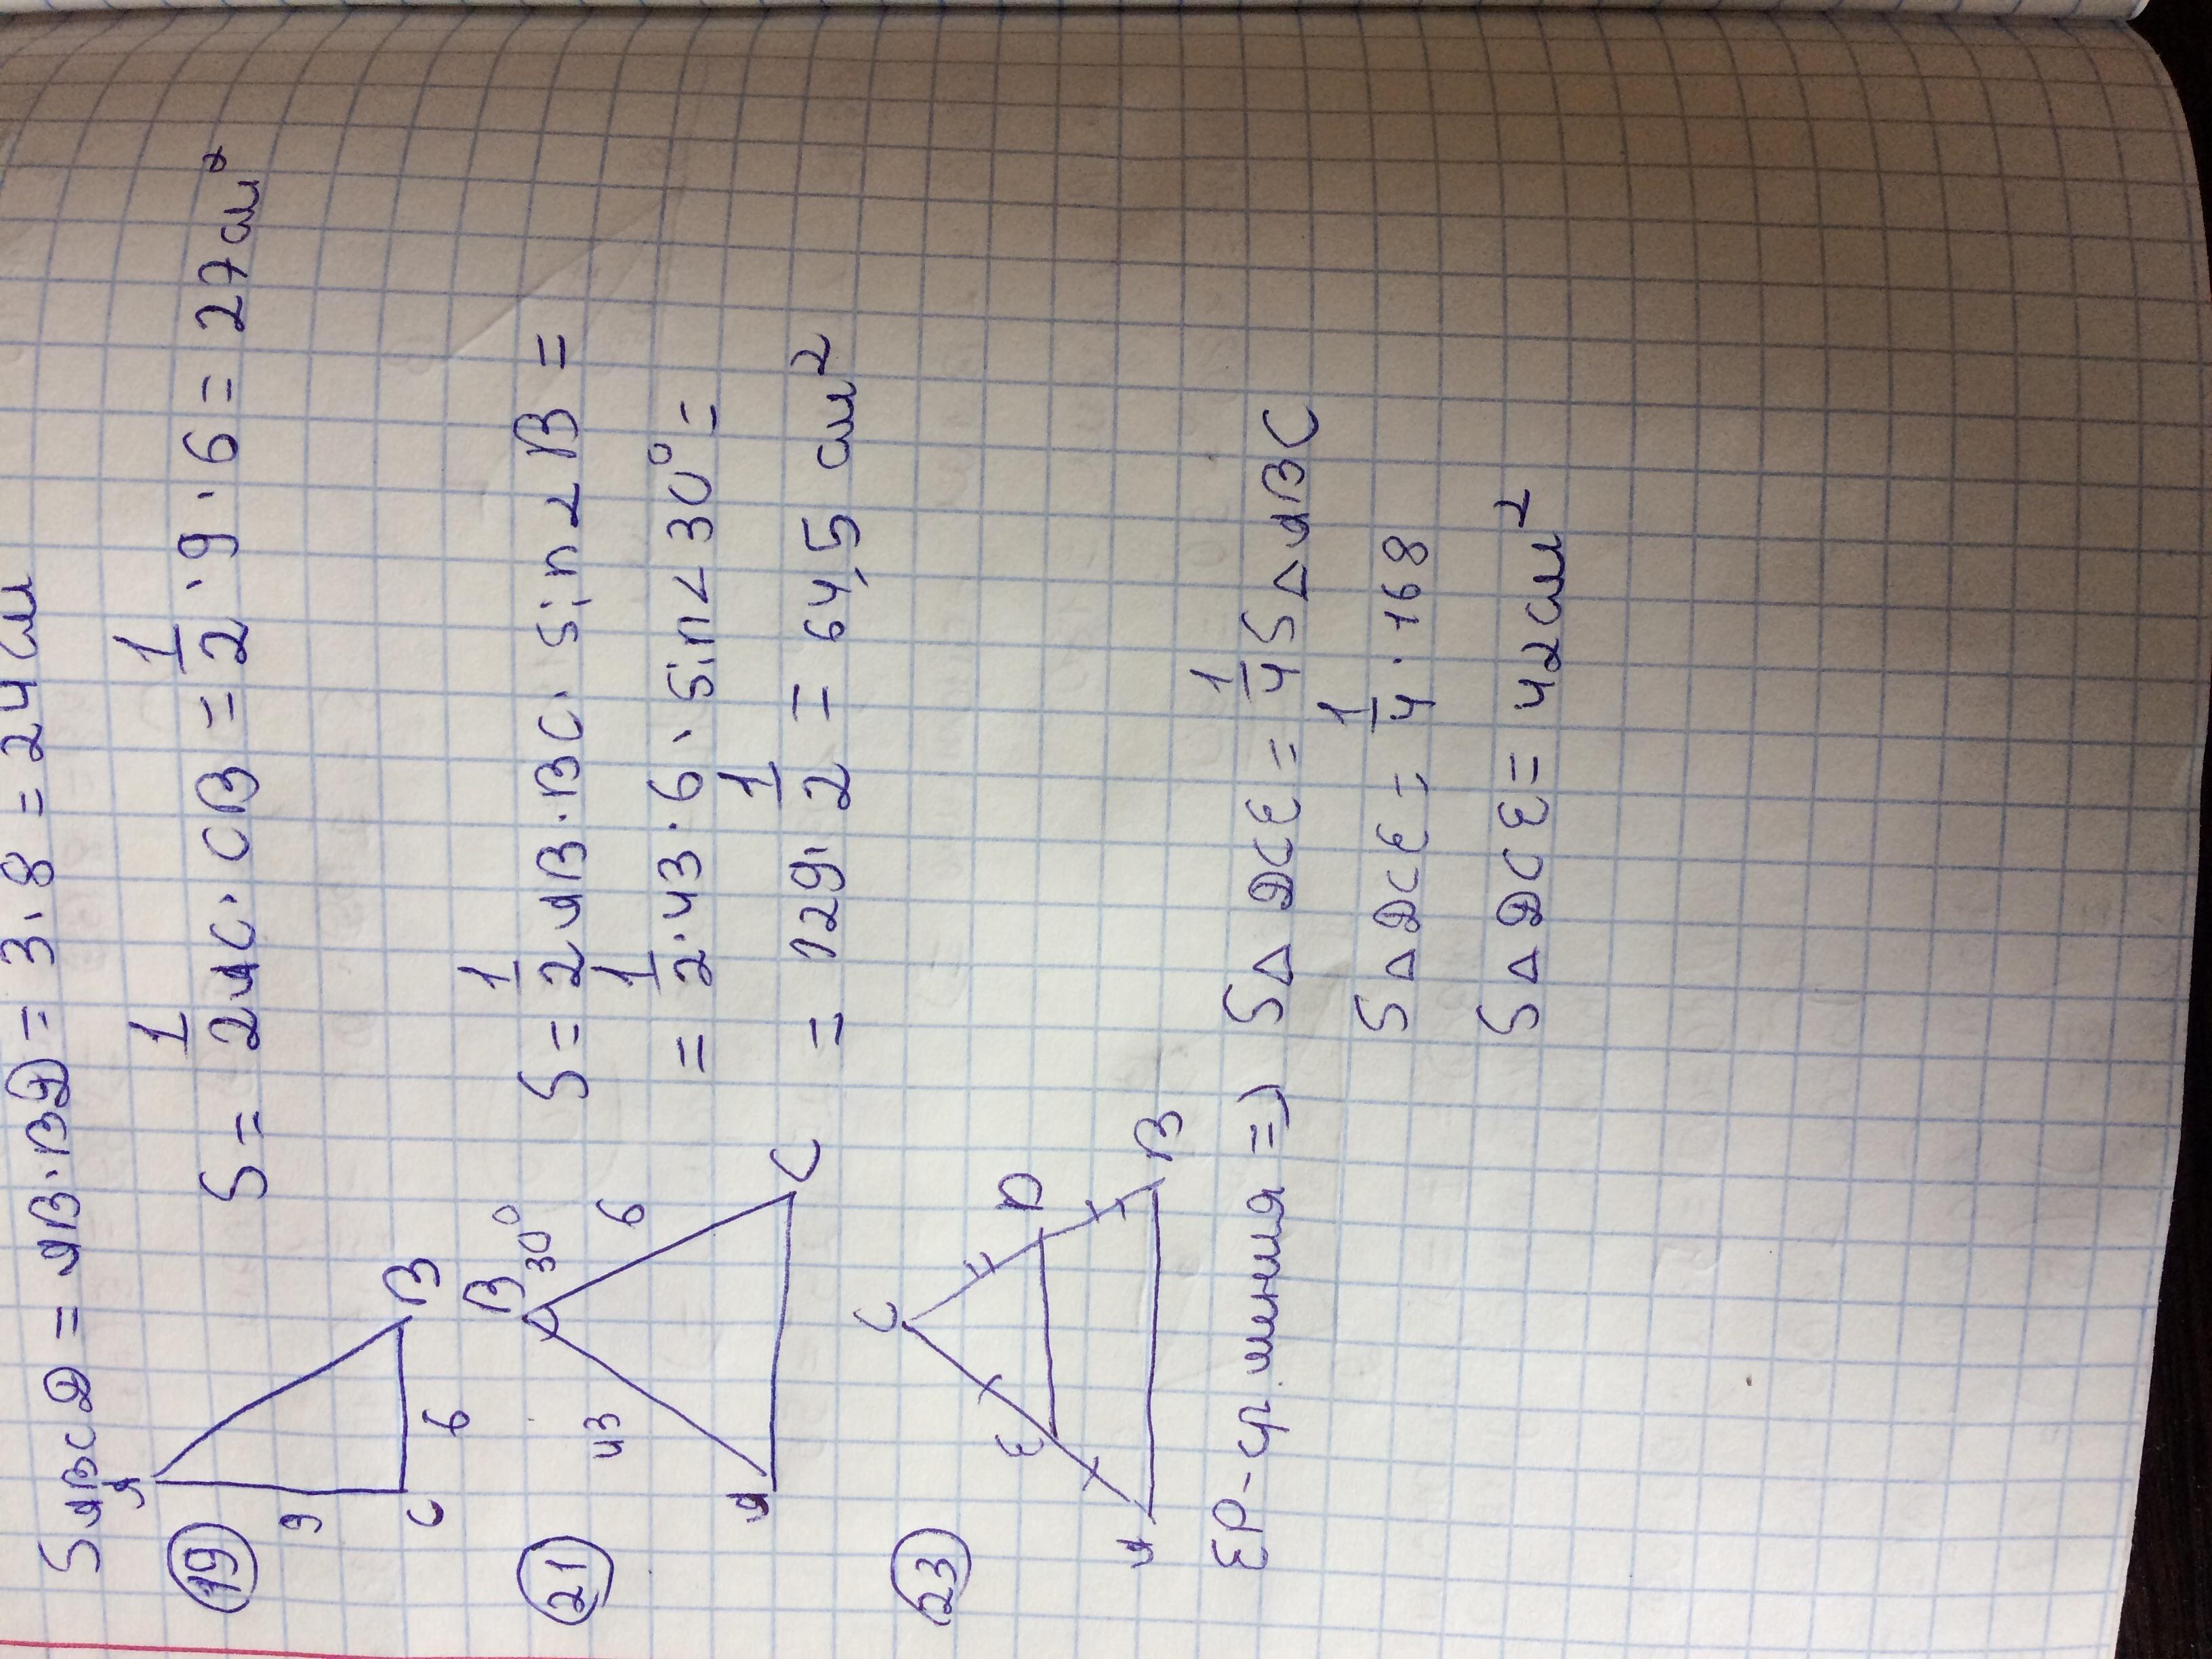 SABCD = AB·BD = 3·8 = 24 см
19
A
9
C
6
B
S = 1/2 AC·CB = 1/2 · 9 · 6 = 27 см²
21
B
30°
43
6
A
C
S = 1/2 AB·BC· sin∠B =
= 1/2·43·6· sin∠30° =
= 129· 1/2 = 64,5 см²
23
C
E
D
A
B
ED-ср. линия => S△DCE = 1/4 S△ABC
S△DCE = 1/4 · 168
S△DCE = 42 см²